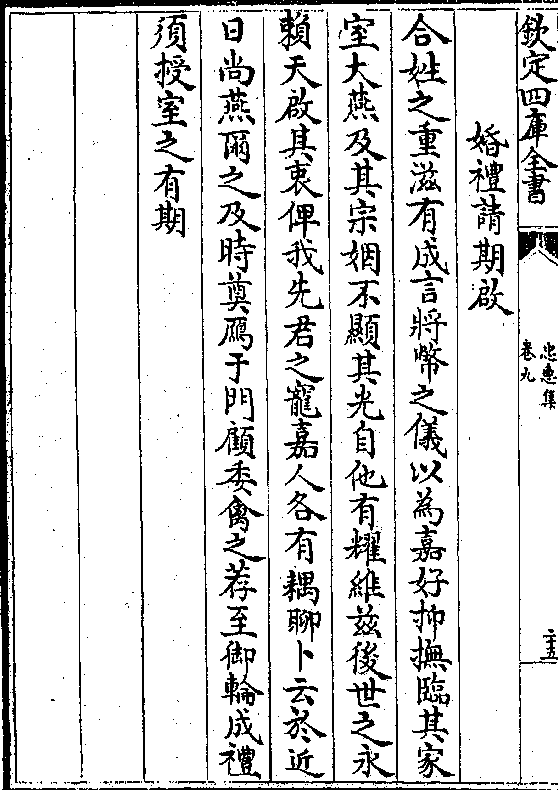 欽定四庫全書
忠惠集
卷九
二十五
婚禮請期啟
合姓之重滋有成言將幣之儀以為嘉好抑撫臨其家
室大燕及其宗姻不顯其光自他有耀維茲後世之永
賴天啟其衷俾我先君之寵嘉人各有耦聊卜云於近
日尚燕爾之及時奠鴈于門顧委禽之荐至御輪成禮
須授室之有期